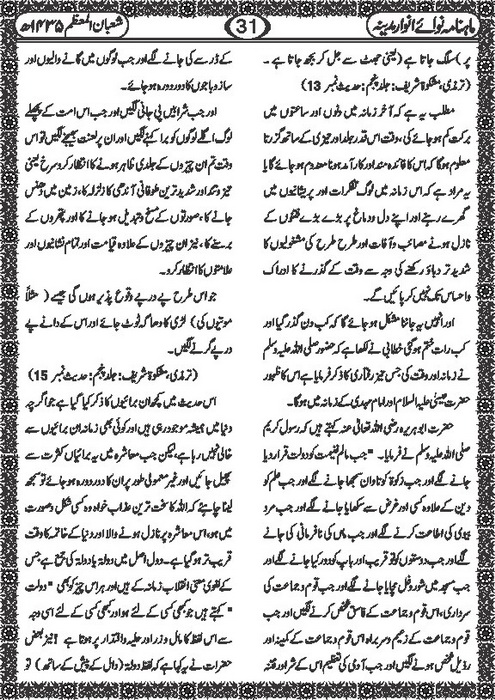 ماہنامہ نوائے انوارِ مدینہ
31
شعبان المعظم ۱۴۳۵ھ
پر) سلگ جاتا ہے (یعنی جھٹ سے جل کر بجھ جاتا ہے ۔
(ترمذی، مشکوٰۃ شریف: جلد پنجم: حدیث نمبر 13)
مطلب یہ ہے کہ آخر زمانہ میں دنوں اور ساعتوں میں
برکت کم ہو جائے گی، وقت اس قدر جلد اور تیزی کے ساتھ گزرتا
معلوم ہوگا کہ اس کا فائدہ مند اور کار آمد ہونا معدوم ہو جائے گا یا
یہ مراد ہے کہ اس زمانہ میں لوگ تفکرات اور پریشانیوں میں
گھرے رہنے اور اپنے دل و دماغ پر بڑے بڑے فتنوں کے
نازل ہونے مصائب و آفات اور طرح طرح کی مشغولیوں کا
شدید تر دباؤ رکھنے کی وجہ سے وقت کے گذرنے کا ادراک
و احساس تک نہیں کر پائیں گے۔
اور انہیں یہ جاننا مشکل ہو جائے گا کہ کب دن گذر گیا اور
کب رات ختم ہو گئی خطابی نے لکھا ہے کہ حضور صلی اللہ علیہ وسلم
نے زمانہ اور وقت کی جس تیز رفتاری کا ذکر فرمایا ہے اس کا ظہور
حضرت عیسیٰ علیہ السلام اور امام مہدی کے زمانہ میں ہوگا۔
حضرت ابو ہریرہ رضی اللہ تعالیٰ عنہ کہتے ہیں کہ رسول کریم
صلی اللہ علیہ وسلم نے فرمایا۔ "جب مال غنیمت کو دولت قرار دیا
جانے لگے اور جب زکوٰۃ کو تاوان سمجھا جانے لگے اور جب علم کو
دین کے علاوہ کسی اور غرض سے سکھایا جانے لگے اور جب مرد
بیوی کی اطاعت کرنے لگے اور جب ماں کی نافرمانی کی جانے
لگے اور جب دوستوں کو تو قریب اور باپ کو دور کیا جانے لگے اور
جب مسجد میں شور و غل مچایا جانے لگے اور جب قوم و جماعت کی
سرداری، اس قوم و جماعت کے فاسق شخص کرنے لگیں اور جب
قوم و جماعت کے زعیم و سربراہ اس قوم و جماعت کے کمینہ اور
رذیل شخص ہونے لگیں اور جب آدمی کی تعظیم اس کے شر اور فتنہ
کے ڈر سے کی جانے لگے اور جب لوگوں میں گانے والیوں اور
ساز و باجوں کا دور دورہ ہو جائے۔
اور جب شرابیں پی جانی لگیں اور جب اس امت کے پچھلے
لوگ اگلے لوگوں کو برا کہنے لگیں اور ان پر لعنت بھیجنے لگیں تو اس
وقت تم ان چیزوں کے جلدی ظاہر ہونے کا انتظار کرو سرخ یعنی
تیز و تند اور شدید ترین طوفانی آندھی کا زلزلہ کا، زمین میں دھنس
جانے کا، صورتوں کے مسخ و تبدیل ہو جانے کا اور پتھروں کے
برسنے کا، نیز ان چیزوں کے علاوہ قیامت اور تمام نشانیوں اور
علامتوں کا انتظار کرو۔
جو اس طرح پے در پے وقوع پذیر ہوں گی جیسے (مثلاً
موتیوں کی) لڑی کا دھاگہ ٹوٹ جائے اور اس کے دانے پے
در پے گرنے لگیں۔
(ترمذی، مشکوٰۃ شریف: جلد پنجم: حدیث نمبر 15)
اس حدیث میں کچھ ان برائیوں کا ذکر کیا گیا ہے جو اگرچہ
دنیا میں ہمیشہ موجود رہی ہیں اور کوئی بھی زمانہ ان برائیوں سے
خالی نہیں رہا ہے لیکن جب معاشرہ میں یہ برائیاں کثرت سے
پھیل جائیں اور غیر معمولی طور پر ان کا دور دورہ ہو جائے تو سمجھ
لینا چاہئے کہ اللہ کا سخت ترین عذاب خواہ وہ کسی شکل و صورت
میں ہو، اس معاشرہ پر نازل ہونے والا اور دنیا کے خاتمہ کا وقت
قریب تر ہو گیا ہے۔ دول اصل میں دولۃ یا دولۃ کی جمع ہے جس
کے لغوی معنی انقلاب زمانہ کے ہیں اور ہر اس چیز کو بھی " دولت
" کہتے ہیں جو کبھی کسی کے لئے ہو اور کبھی کسی کے لئے اسی وجہ
سے اس لفظ کا مال و زر اور غلبہ و اقتدار پر ہوتا ہے! نیز بعض
حضرات نے یہ کہا ہے کہ لفظ دولۃ (دال کے پیش کے ساتھ) تو